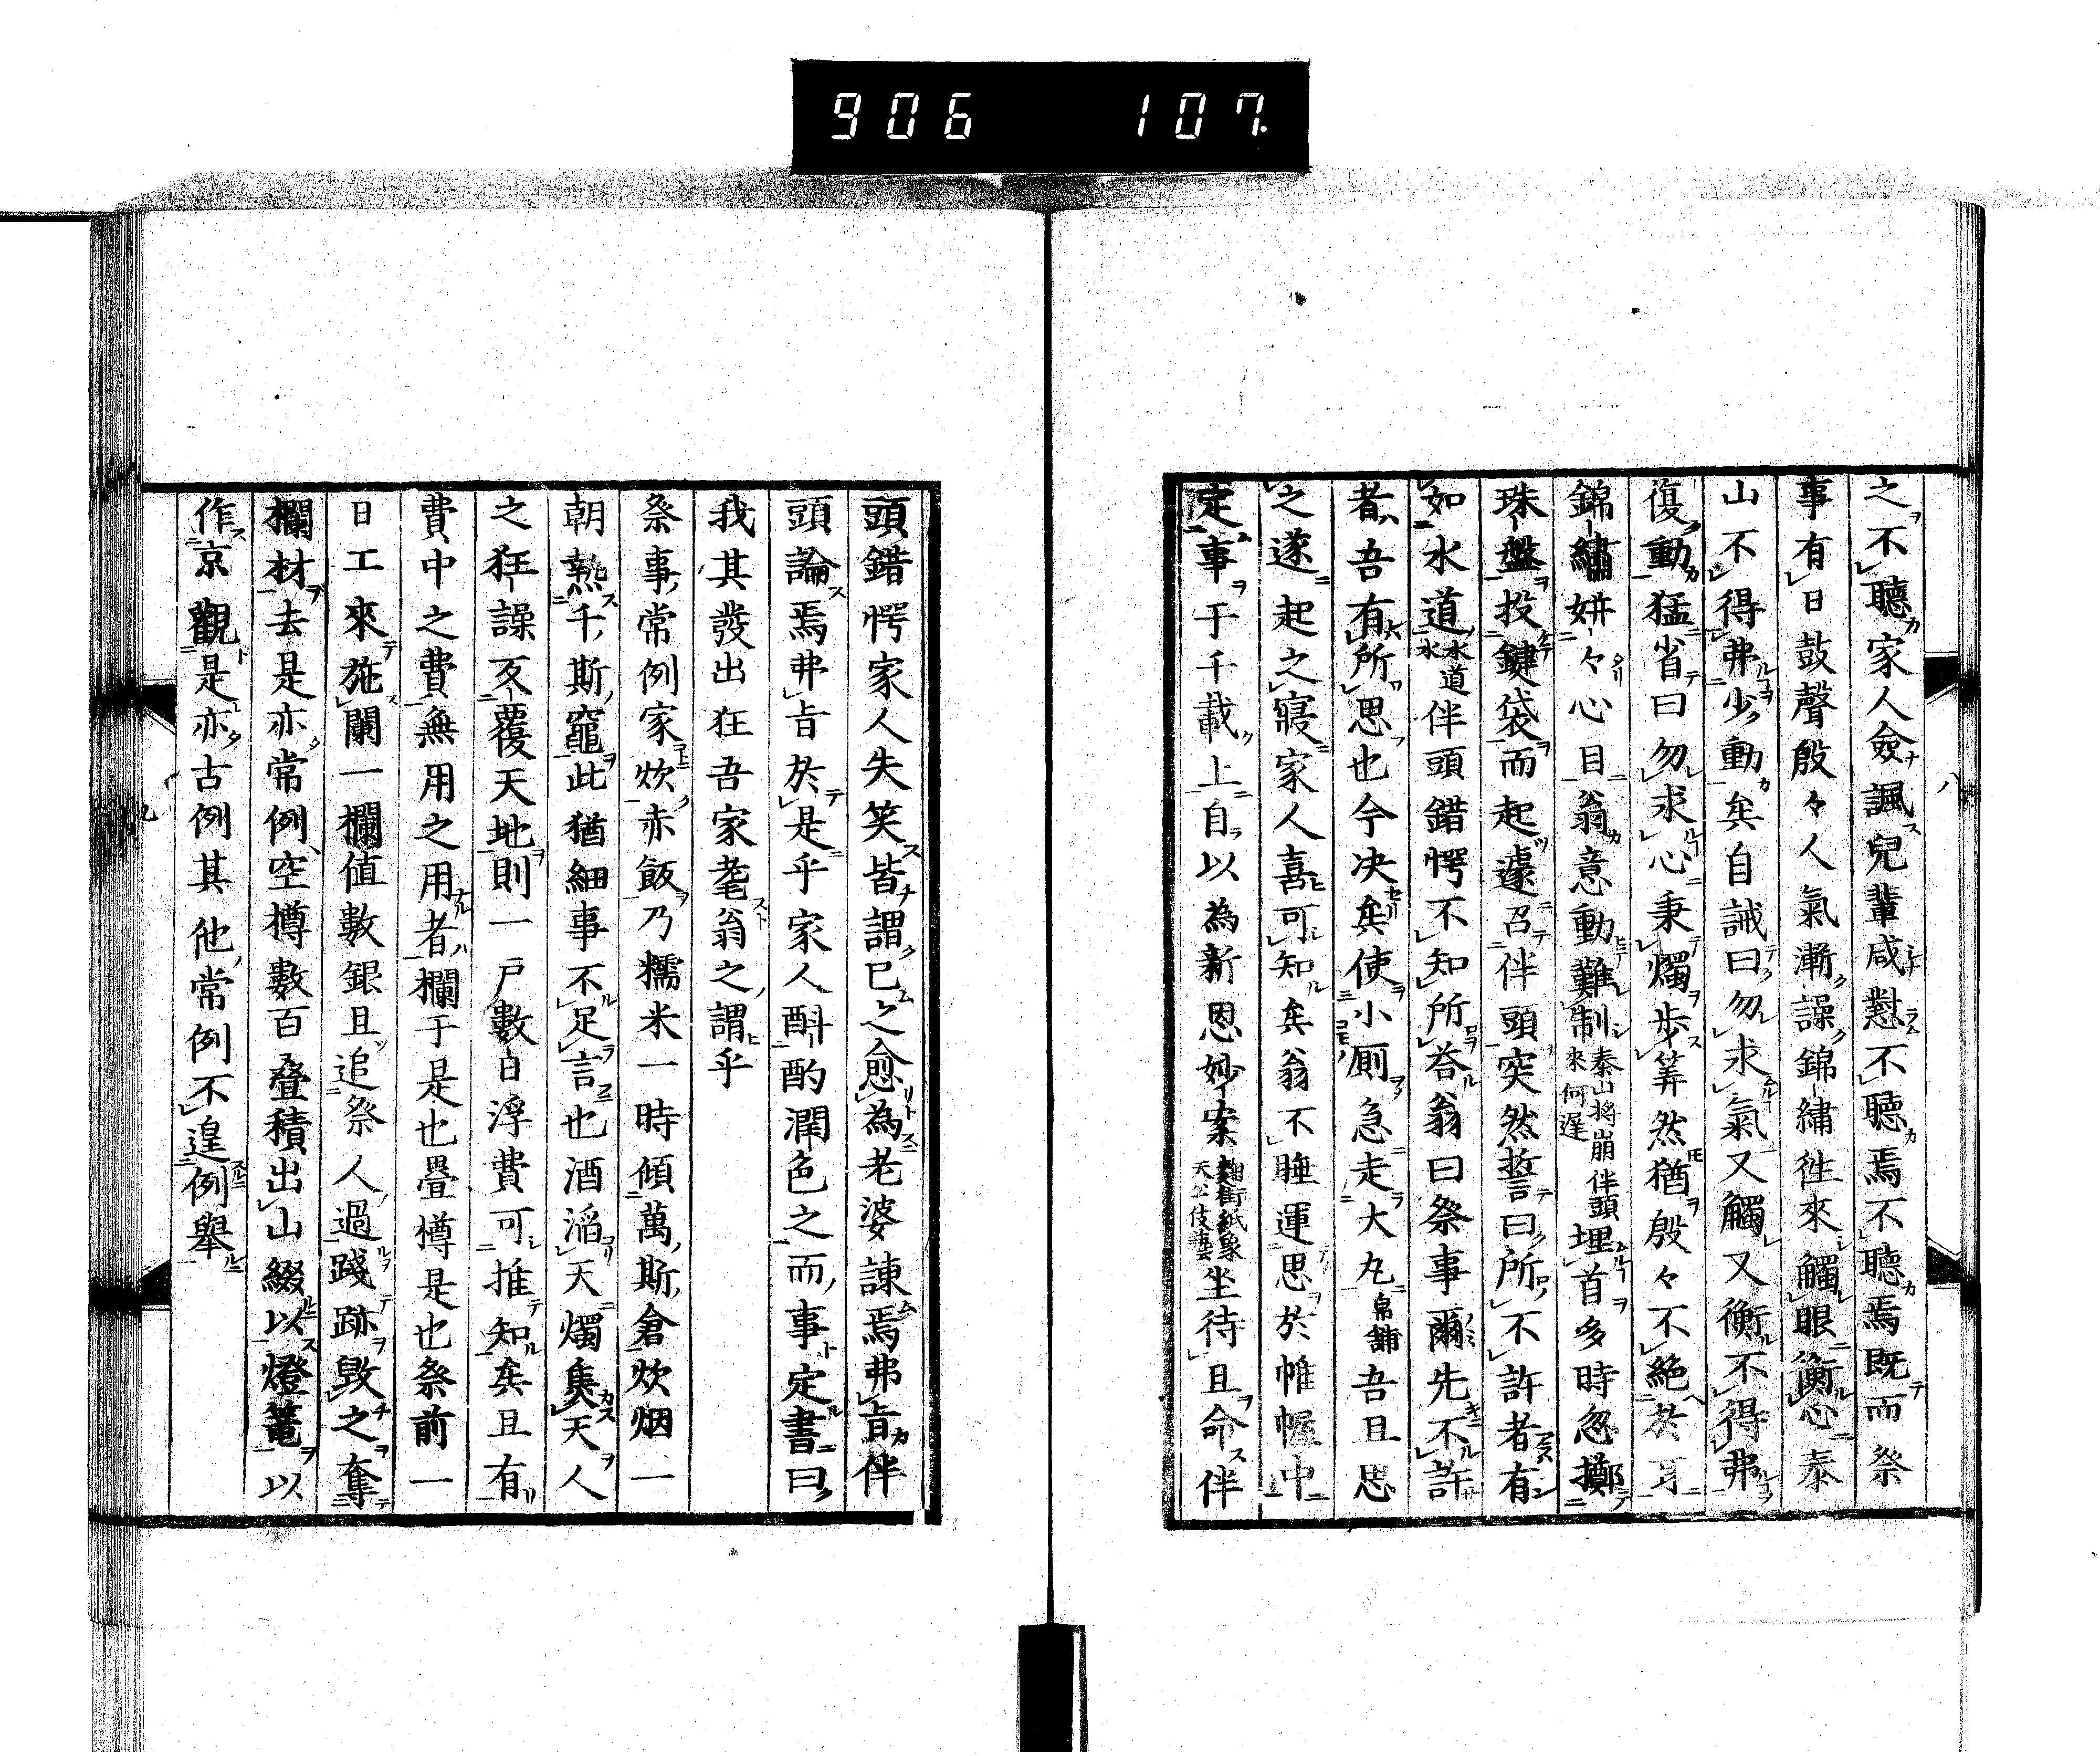 906 107.
八
之不聽家人僉諷兒輩咸懟不聽焉不聽焉既而祭
事有日鼓聲殷々人氣漸譟錦繡徃來觸眼衡心泰
山不得弗少動矣自誡曰勿求氣又觸又衡不得弗
復動猛省曰勿求心秉燭步筭然猶殷々不絕於耳
錦繡妍々心目翁意動難制泰山將崩來何遲伴頭埋首多時忽擲
珠盤投鍵袋而起遽召伴頭突然誓曰所不許者有
如水道水道水伴頭錯愕不知所答翁曰祭事爾先不許
者吾有所思也今决矣使小厠急走大丸帛舖吾且思
之遂起之寢家人喜可知矣翁不睡運思於帷幄中
定事于千載上自以為新恩妙案麹街紙象天公伎藝坐待且命伴
頭錯愕家人失笑皆謂已之愈為老婆諌焉弗肯伴
頭論焉弗肯於是乎家人斟酌潤色之而事定書曰
我其發出狂吾家耄翁之謂乎
祭事常例家炊赤飯乃糯米一時傾萬斯倉炊烟一
朝熱千斯竈此猶細事不足言也酒滔天燭集天人
之狂譟反覆天地則一戶數百浮費可推知矣且有
費中之費無用之用者欄于是也疊樽是也祭前一
日工來施闌一欄值數銀且追祭人過踐跡毀之奪
欄材去是亦常例空樽數百疊積出山綴以燈菴以
作京觀是亦古例其他常例不遑例舉
九